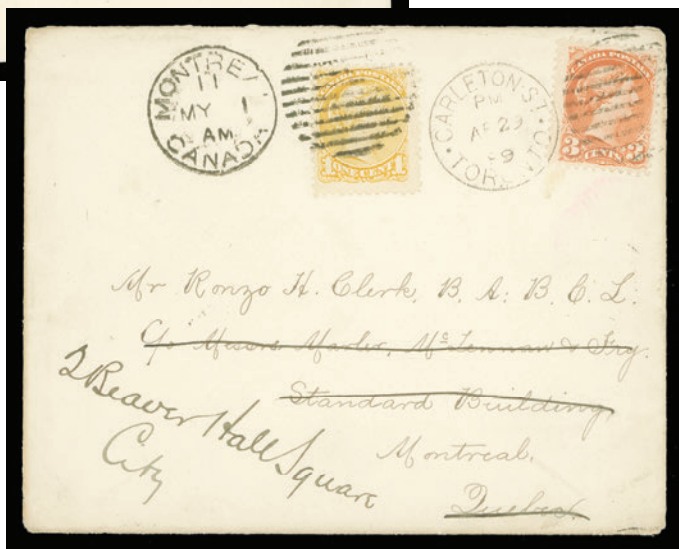 MONTREA
11
MY 1
AM
CANADA
CANADA POSTAGE
1 ONE CENT 1
CARLETON·ST·
PM
AP 29
89
TORONTO
CANADA POSTAGE
3 CENTS 3
Mr Ronzo H. Clerk, B. A: B. C. L.
C/o Messrs Marler, McLennan & Fry.
Standard Building,
Montreal,
Quebec.
2 Beaver Hall Square
City